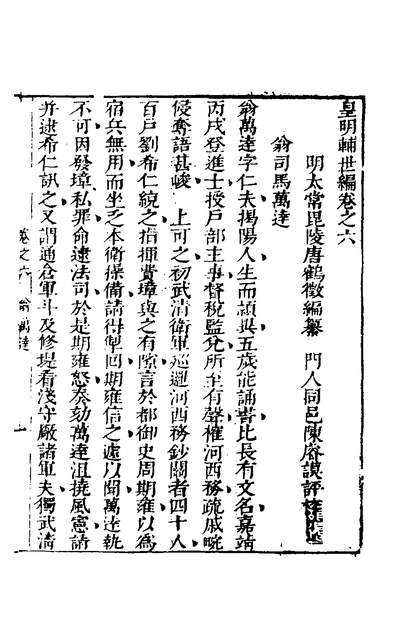 皇明輔世編卷之六
明太常毘陵唐鶴徵編纂　門人同邑陳睿謨評
翁司馬萬達
翁萬達字仁夫揭陽人生而頴異五歲能誦書比長有文名嘉靖
丙戌登進士授戶部主事督稅監兌所至有聲榷河西務疏戚畹
侵奪語甚峻　上可之初武清衛軍巡邏河西務鈔關者四十人
百戶劉希仁統之指揮賁璋與之有隙言於都御史周期雍以為
宿兵無用而坐乏本衛操備請得俾囘期雍信之遽以聞萬達執
不可因發璋私罪命逮法司於是期雍怒奏劾萬達沮撓風憲請
并逮希仁訊之又謂通倉軍斗及修堤看淺守厰諸軍夫獨武清
卷之六　翁萬達
一